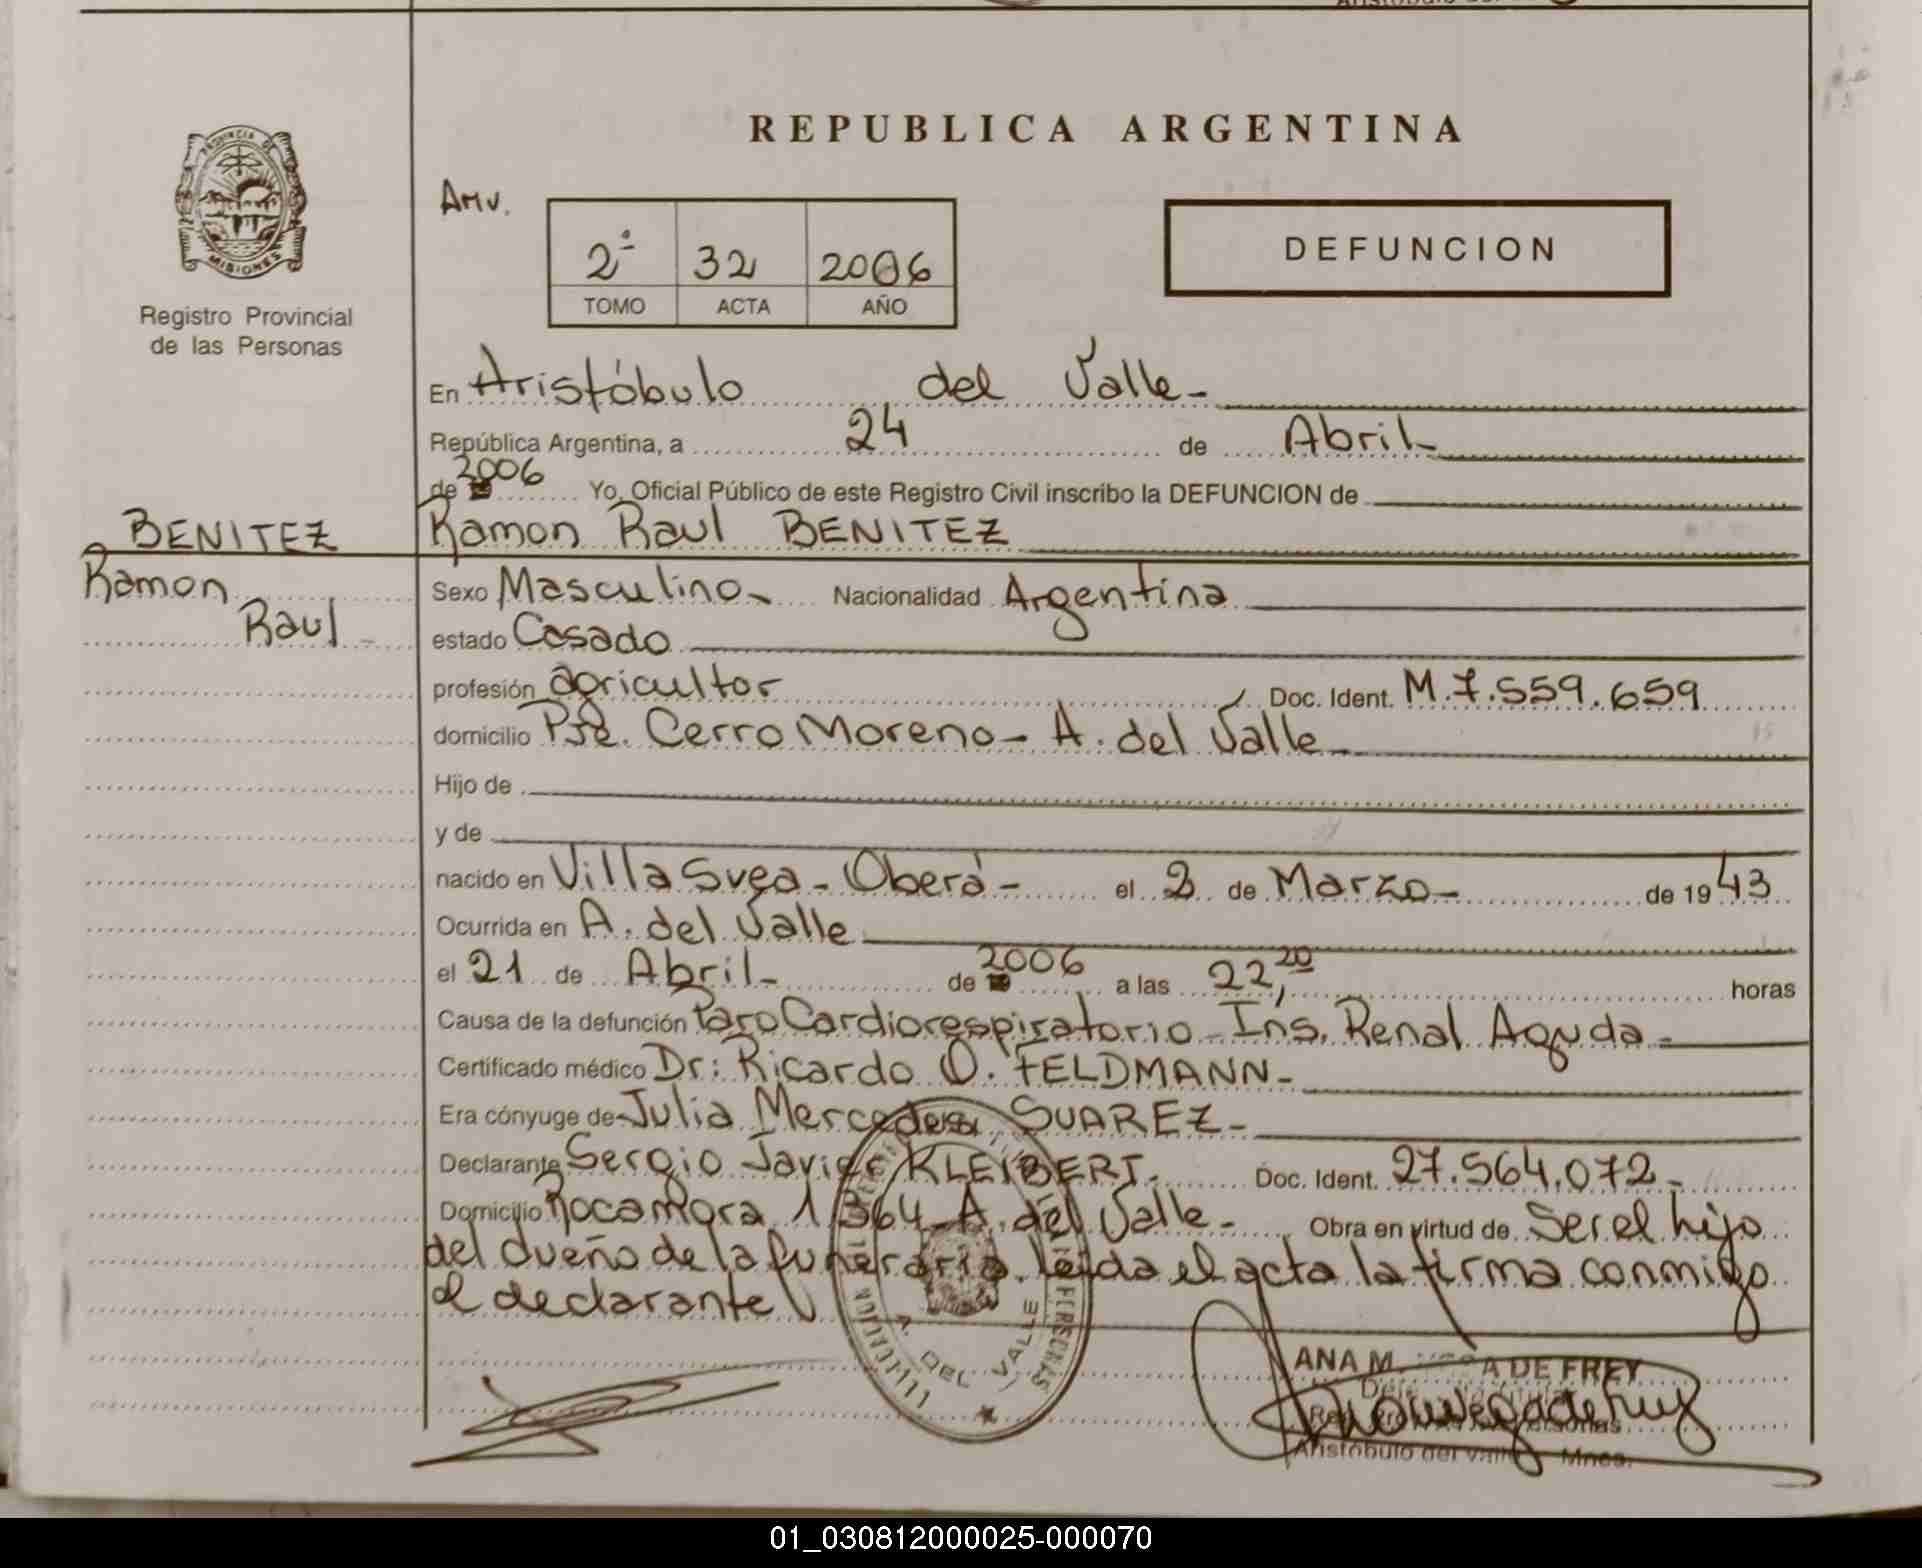 REPUBLICA ARGENTINA
PROVINCIA DE
MISIONES
Registro Provincial
de las Personas
2º 32 2006
TOMO ACTA AÑO
DEFUNCION
En Aristóbulo del Valle-
República Argentina, a 24 de Abril-
de 2006 Yo, Oficial Público de este Registro Civil inscribo la DEFUNCION de
BENITEZ
Ramon
Raul
Ramon Raul BENITEZ
Sexo Masculino- Nacionalidad Argentina
estado Casado
profesión agricultor Doc. Ident. M.7.559.659
domicilio Pje. Cerro Moreno- A. del Valle-
Hijo de
y de
nacido en Villa Svea- Oberá- el 2 de Marzo- de 1943
Ocurrida en A. del Valle
el 21 de Abril- de 2006 a las 22,20 horas
Causa de la defunción Paro Cardiorespiratorio- Ins. Renal Aguda-
Certificado médico Dr: Ricardo O. FELDMANN-
Era cónyuge de Julia Mercedes SUAREZ-
Declarante Sergio Javier KLEIBERT- Doc. Ident. 27.564.072-
Domicilio Rocamora 1.364- A. del Valle- Obra en virtud de Ser el hijo
del dueño de la funeraria. Leída el acta la firma conmigo
el declarante
A. DEL VALLE
ANA M. DE FREY
Aristóbulo del Valle Mnes.
01_030812000025-000070